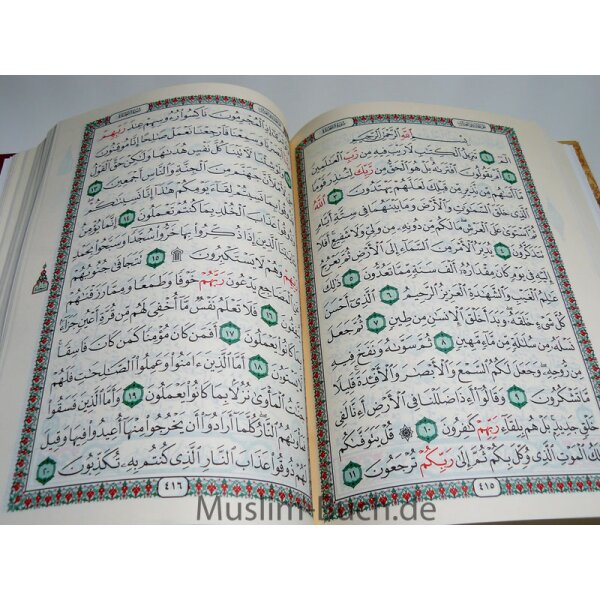 بِسْمِ ٱللَّهِ ٱلرَّحْمَٰنِ ٱلرَّحِيمِ
الٓمٓ ١ تَنزِيلُ ٱلْكِتَٰبِ لَا رَيْبَ فِيهِ مِن رَّبِّ ٱلْعَٰلَمِينَ
٢ أَمْ يَقُولُونَ ٱفْتَرَىٰهُ بَلْ هُوَ ٱلْحَقُّ مِن رَّبِّكَ لِتُنذِرَ قَوْمًا
مَّآ أَتَىٰهُم مِّن نَّذِيرٍ مِّن قَبْلِكَ لَعَلَّهُمْ يَهْتَدُونَ ٣ ٱللَّهُ
ٱلَّذِى خَلَقَ ٱلسَّمَٰوَٰتِ وَٱلْأَرْضَ وَمَا بَيْنَهُمَا فِى سِتَّةِ أَيَّامٍ
ثُمَّ ٱسْتَوَىٰ عَلَى ٱلْعَرْشِ مَا لَكُم مِّن دُونِهِۦ مِن وَلِىٍّ وَلَا شَفِيعٍ أَفَلَا
تَتَذَكَّرُونَ ٤ يُدَبِّرُ ٱلْأَمْرَ مِنَ ٱلسَّمَآءِ إِلَى ٱلْأَرْضِ ثُمَّ يَعْرُجُ
إِلَيْهِ فِى يَوْمٍ كَانَ مِقْدَارُهُۥٓ أَلْفَ سَنَةٍ مِّمَّا تَعُدُّونَ ٥ ذَٰلِكَ
عَٰلِمُ ٱلْغَيْبِ وَٱلشَّهَٰدَةِ ٱلْعَزِيزُ ٱلرَّحِيمُ ٦ ٱلَّذِىٓ أَحْسَنَ
كُلَّ شَىْءٍ خَلَقَهُۥ وَبَدَأَ خَلْقَ ٱلْإِنسَٰنِ مِن طِينٍ ٧ ثُمَّ جَعَلَ
نَسْلَهُۥ مِن سُلَٰلَةٍ مِّن مَّآءٍ مَّهِينٍ ٨ ثُمَّ سَوَّىٰهُ وَنَفَخَ فِيهِ
مِن رُّوحِهِۦ وَجَعَلَ لَكُمُ ٱلسَّمْعَ وَٱلْأَبْصَٰرَ وَٱلْأَفْـِٔدَةَ قَلِيلًا
مَّا تَشْكُرُونَ ٩ وَقَالُوٓا۟ أَءِذَا ضَلَلْنَا فِى ٱلْأَرْضِ أَءِنَّا لَفِى
خَلْقٍ جَدِيدٍ بَلْ هُم بِلِقَآءِ رَبِّهِمْ كَٰفِرُونَ ١٠ قُلْ يَتَوَفَّىٰكُم
مَّلَكُ ٱلْمَوْتِ ٱلَّذِى وُكِّلَ بِكُمْ ثُمَّ إِلَىٰ رَبِّكُمْ تُرْجَعُونَ ١١
٤١٥
ٱلْمُجْرِمُونَ نَاكِسُوا۟ رُءُوسِهِمْ عِندَ رَبِّهِمْ
وَسَمِعْنَا فَٱرْجِعْنَا نَعْمَلْ صَٰلِحًا إِنَّا مُوقِنُونَ
لَـَٔاتَيْنَا كُلَّ نَفْسٍ هُدَىٰهَا وَلَٰكِنْ حَقَّ ٱلْقَوْلُ
مِنَ ٱلْجِنَّةِ وَٱلنَّاسِ أَجْمَعِينَ ١٣
لِقَآءَ يَوْمِكُمْ هَٰذَآ إِنَّا نَسِينَٰكُمْ
عَذَابَ ٱلْخُلْدِ بِمَا كُنتُمْ تَعْمَلُونَ ١٤ إِنَّمَا يُؤْمِنُ
ٱلَّذِينَ إِذَا ذُكِّرُوا۟ بِهَا خَرُّوا۟ سُجَّدًا وَسَبَّحُوا۟ بِحَمْدِ
رَبِّهِمْ وَهُمْ لَا يَسْتَكْبِرُونَ ۩ ١٥ تَتَجَافَىٰ جُنُوبُهُمْ
ٱلْمَضَاجِعِ يَدْعُونَ رَبَّهُمْ خَوْفًا وَطَمَعًا وَمِمَّا رَزَقْنَٰهُمْ
١٦ فَلَا تَعْلَمُ نَفْسٌ مَّآ أُخْفِىَ لَهُم مِّن قُرَّةِ أَعْيُنٍ جَزَآءً
يَعْمَلُونَ ١٧ أَفَمَن كَانَ مُؤْمِنًا كَمَن كَانَ فَاسِقًا
يَسْتَوُۥنَ ١٨ أَمَّا ٱلَّذِينَ ءَامَنُوا۟ وَعَمِلُوا۟ ٱلصَّٰلِحَٰتِ فَلَهُمْ
جَنَّٰتُ ٱلْمَأْوَىٰ نُزُلًۢا بِمَا كَانُوا۟ يَعْمَلُونَ ١٩ وَأَمَّا ٱلَّذِينَ فَسَقُوا۟
فَمَأْوَىٰهُمُ ٱلنَّارُ كُلَّمَآ أَرَادُوٓا۟ أَن يَخْرُجُوا۟ مِنْهَآ أُعِيدُوا۟ فِيهَا وَقِيلَ
لَهُمْ ذُوقُوا۟ عَذَابَ ٱلنَّارِ ٱلَّذِى كُنتُم بِهِۦ تُكَذِّبُونَ ٢٠
٤١٦
Muslim-Buch.de